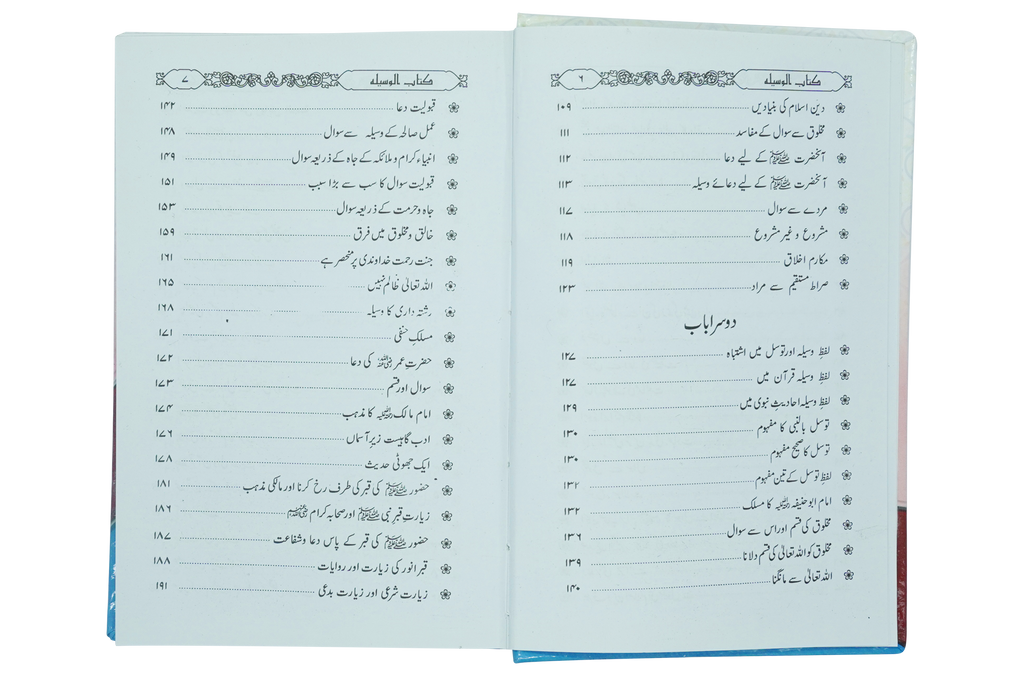 کتاب الوسیلہ ۶
دین اسلام کی بنیادیں ۱۰۹
مخلوق سے سوال کے مفاسد ۱۱۱
آنحضرت ﷺ کے لیے دعا ۱۱۲
آنحضرت ﷺ کے لیے دعائے وسیلہ ۱۱۳
مردے سے سوال ۱۱۷
مشروع و غیر مشروع ۱۱۸
مکارم اخلاق ۱۱۹
صراط مستقیم سے مراد ۱۲۳
دوسرا باب
لفظ وسیلہ اور توسل میں اشتباہ ۱۲۷
لفظِ وسیلہ قرآن میں ۱۲۷
لفظِ وسیلہ احادیثِ نبوی میں ۱۲۹
توسل بالنبی کا مفہوم ۱۳۰
توسل کا صحیح مفہوم ۱۳۰
لفظِ توسل کے تین مفہوم ۱۳۲
امام ابوحنیفہ رحمۃ اللہ علیہ کا مسلک ۱۳۲
مخلوق کی قسم اور اس سے سوال ۱۳۶
مخلوق کو اللہ تعالیٰ کی قسم دلانا ۱۳۹
اللہ تعالیٰ سے مانگنا ۱۴۰
کتاب الوسیلہ ۷
قبولیت دعا ۱۴۲
عمل صالح کے وسیلہ سے سوال ۱۴۸
انبیاء کرام و ملائکہ کے جاہ کے ذریعہ سوال ۱۴۹
قبولیت سوال کا سب سے بڑا سبب ۱۵۱
جاہ و حرمت کے ذریعہ سوال ۱۵۳
خالق و مخلوق میں فرق ۱۵۹
جنت رحمت خداوندی پر منحصر ہے ۱۶۱
اللہ تعالیٰ ظالم نہیں ۱۶۵
رشتہ داری کا وسیلہ ۱۶۸
مسلک حنفی ۱۷۱
حضرت عمر رضی اللہ عنہ کی دعا ۱۷۲
سوال اور قسم ۱۷۳
امام مالک رحمۃ اللہ علیہ کا مذہب ۱۷۴
ادب گاہیست زیر آسماں ۱۷۶
ایک جھوٹی حدیث ۱۷۸
حضور ﷺ کی قبر کی طرف رخ کرنا اور مالکی مذہب ۱۸۱
زیارتِ قبرِ نبی ﷺ اور صحابہ کرام رضی اللہ عنہم ۱۸۶
حضور ﷺ کی قبر کے پاس دعا و شفاعت ۱۸۷
قبر انور کی زیارت اور روایات ۱۸۸
زیارت شرعی اور زیارت بدعی ۱۹۱